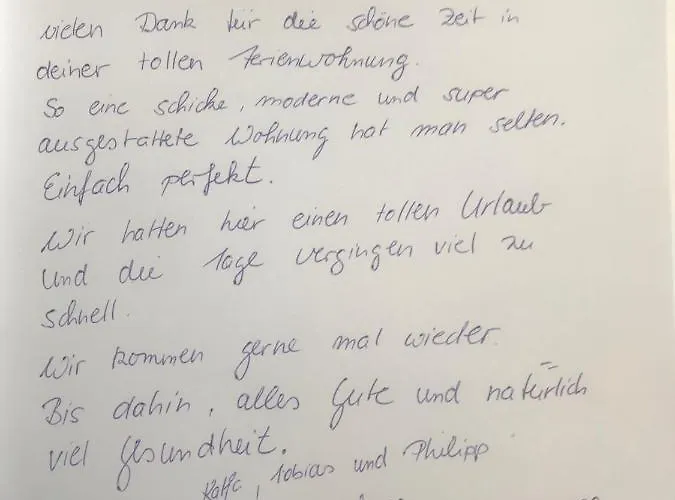 vielen Dank für die schöne Zeit in
deiner tollen Ferienwohnung.
So eine schicke, moderne und super
ausgestattete Wohnung hat man selten.
Einfach perfekt.
Wir hatten hier einen tollen Urlaub
und die Tage vergingen viel zu
schnell.
Wir kommen gerne mal wieder.
Bis dahin, alles Gute und natürlich
viel Gesundheit.
, Tobias und Philipp